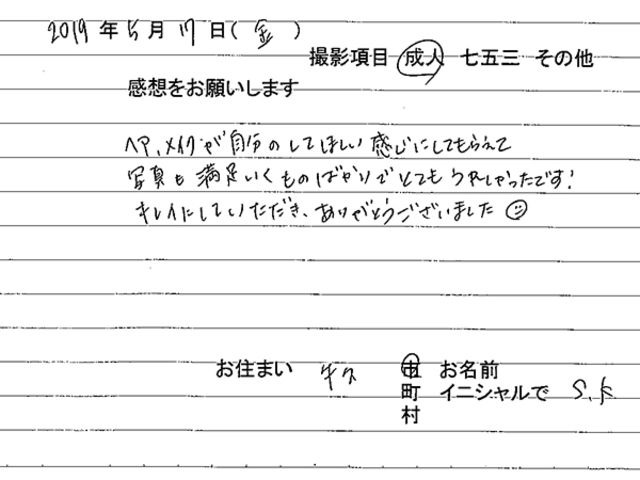 2019年5月17日(金)
撮影項目 成人 七五三 その他
感想をお願いします
ヘア、メイクが自分のしてほしい感じにしてもらえて
写真も満足いくものばかりでとてもうれしかったです!
キレイにしていただき、ありがとうございました☺
お住まい 牛久 市 お名前
町 イニシャルで S.K
村